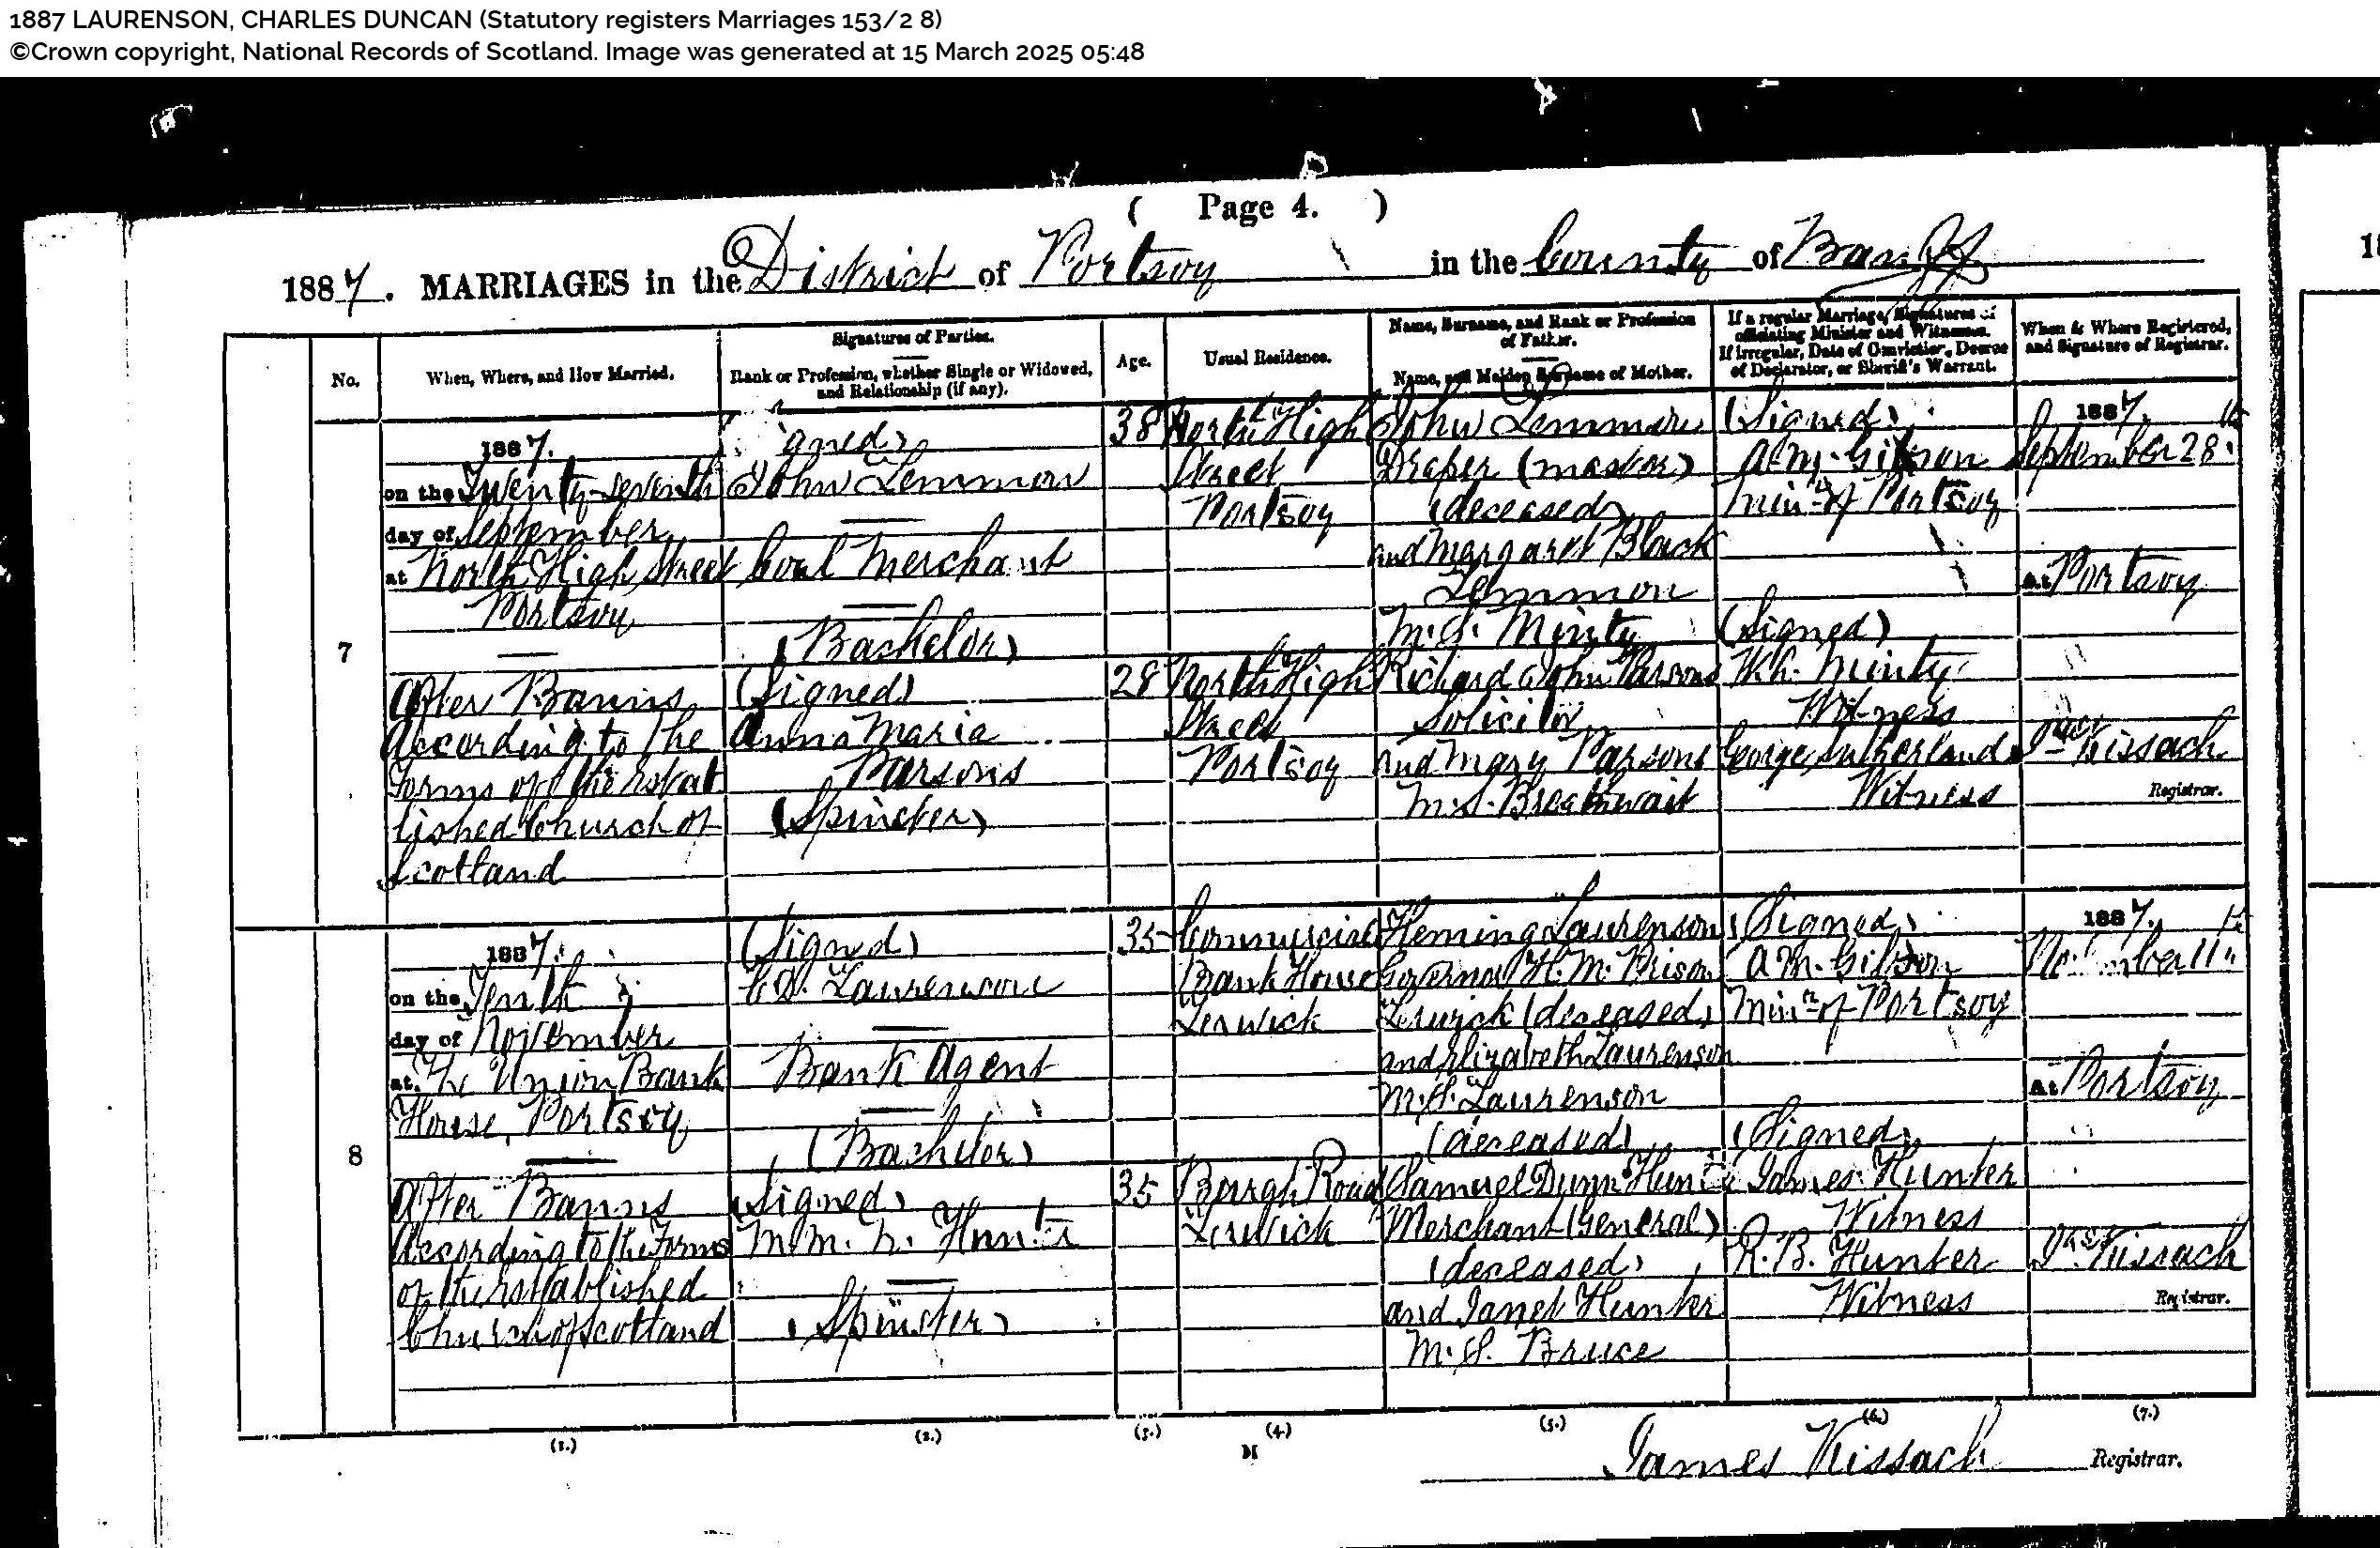 1887 LAURENSON, CHARLES DUNCAN (Statutory registers Marriages 153/2 8)
©Crown copyright, National Records of Scotland. Image was generated at 15 March 2025 05:48
( Page 4. )
1887. MARRIAGES in the District of Portsoy in the County of Banff
No.
When, Where, and How Married.
Signatures of Parties.
Rank or Profession, whether Single or Widowed,
and Relationship (if any).
Age.
Usual Residence.
Name, Surname, and Rank or Profession
of Father.
Name, and Maiden Surname of Mother.
If a regular Marriage, Signatures of
officiating Minister and Witnesses.
If irregular, Date of Conviction, Decree
of Declarator, or Sheriff's Warrant.
When & Where Registered,
and Signature of Registrar.
7
1887.
on the Twenty-seventh
day of September
at North High Street
Portsoy
After Banns
According to the
Forms of the Estab
lished Church of
Scotland
John Lemmon
Coal Merchant
(Bachelor)
(Signed)
Anna Maria
Parsons
(Spinster)
38
North High
Street
Portsoy
28
North High
Street
Portsoy
John Lemmon
Draper (master)
(deceased)
and Margaret Black
Lemmon
M.S. Minty
Richard John Parsons
Solicitor
and Mary Parsons
M.S. Breathwait
(Signed)
A. M. Gibson
Minr of Portsoy
(Signed)
Minty
Witness
George Sutherland
Witness
1887.
September 28th
At Portsoy
Jas Kissach
Registrar.
8
1887.
on the Tenth
day of November
at The Union Bank
House, Portsoy
After Banns
According to the Forms
of the Established
Church of Scotland
(Signed)
C.D. Laurenson
Bank Agent
(Bachelor)
(Signed)
M. M. Hunter
(Spinster)
35
Commercial
Bank House
Lerwick
35
Burgh Road
Lerwick
Fleming Laurenson
Governor H. M. Prison
Lerwick (deceased)
and Elizabeth Laurenson
M.S. Laurenson
(deceased)
Samuel Dunn Hunter
Merchant (General)
(deceased)
and Janet Hunter
M.S. Bruce
(Signed)
A. M. Gibson
Minr of Portsoy
(Signed)
James Hunter
Witness
R. B. Hunter
Witness
1887.
November 11th
At Portsoy
Jas Kissach
Registrar.
(1.) (2.) (3.) (4.) (5.) (6.) (7.)
M
James Kissach Registrar.